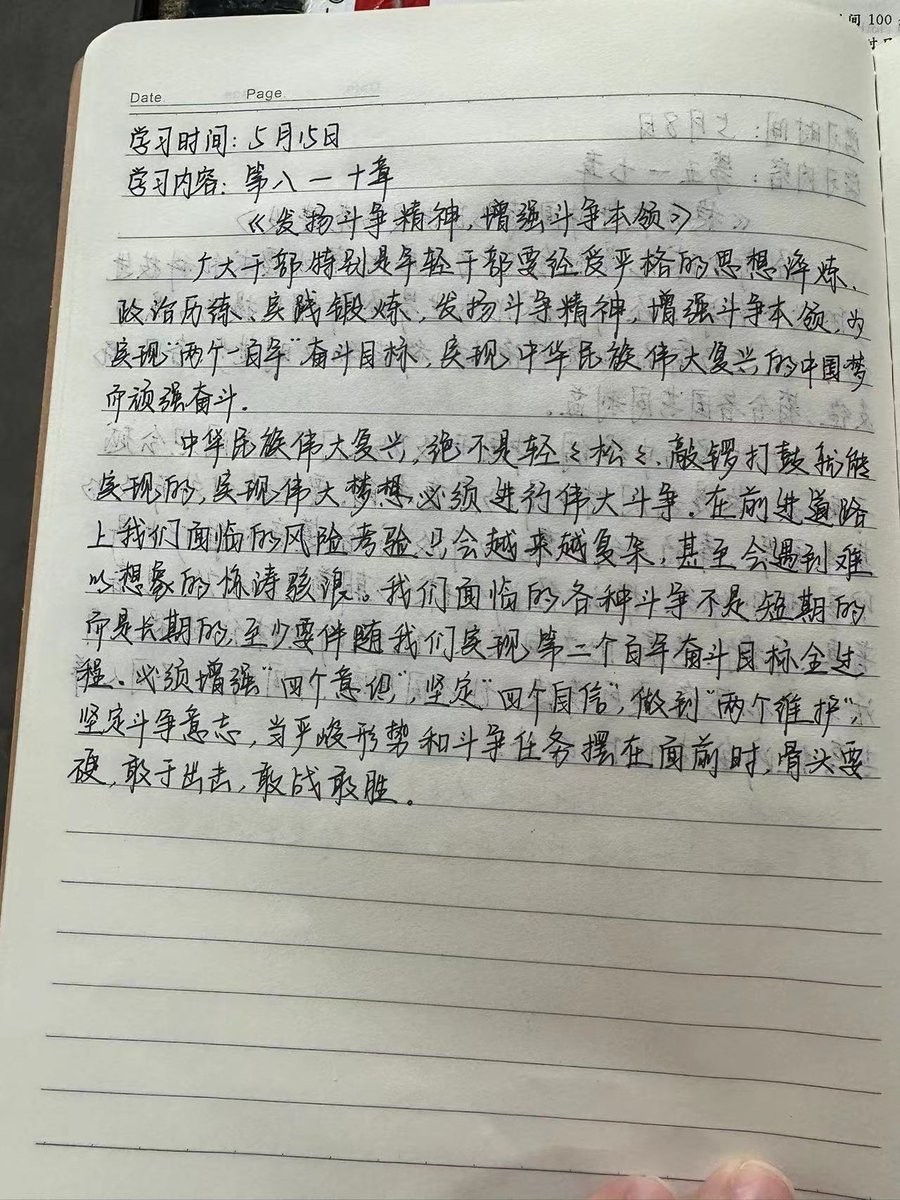 间 100
Date
Page
学习时间：5月15日
学习内容：第八一十章
《发扬斗争精神，增强斗争本领》
广大干部特别是年轻干部要经受严格的思想淬炼、
政治历练、实践锻炼，发扬斗争精神，增强斗争本领，为
实现"两个一百年"奋斗目标、实现中华民族伟大复兴的中国梦
而顽强奋斗。
中华民族伟大复兴，绝不是轻々松々、敲锣打鼓就能
实现的，实现伟大梦想必须进行伟大斗争。在前进道路
上我们面临的风险考验只会越来越复杂，甚至会遇到难
以想象的惊涛骇浪。我们面临的各种斗争不是短期的
而是长期的，至少要伴随我们实现第二个百年奋斗目标全过
程。必须增强"四个意识"，坚定"四个自信"，做到"两个维护"，
坚定斗争意志，当严峻形势和斗争任务摆在面前时，骨头要
硬，敢于出击，敢战敢胜。